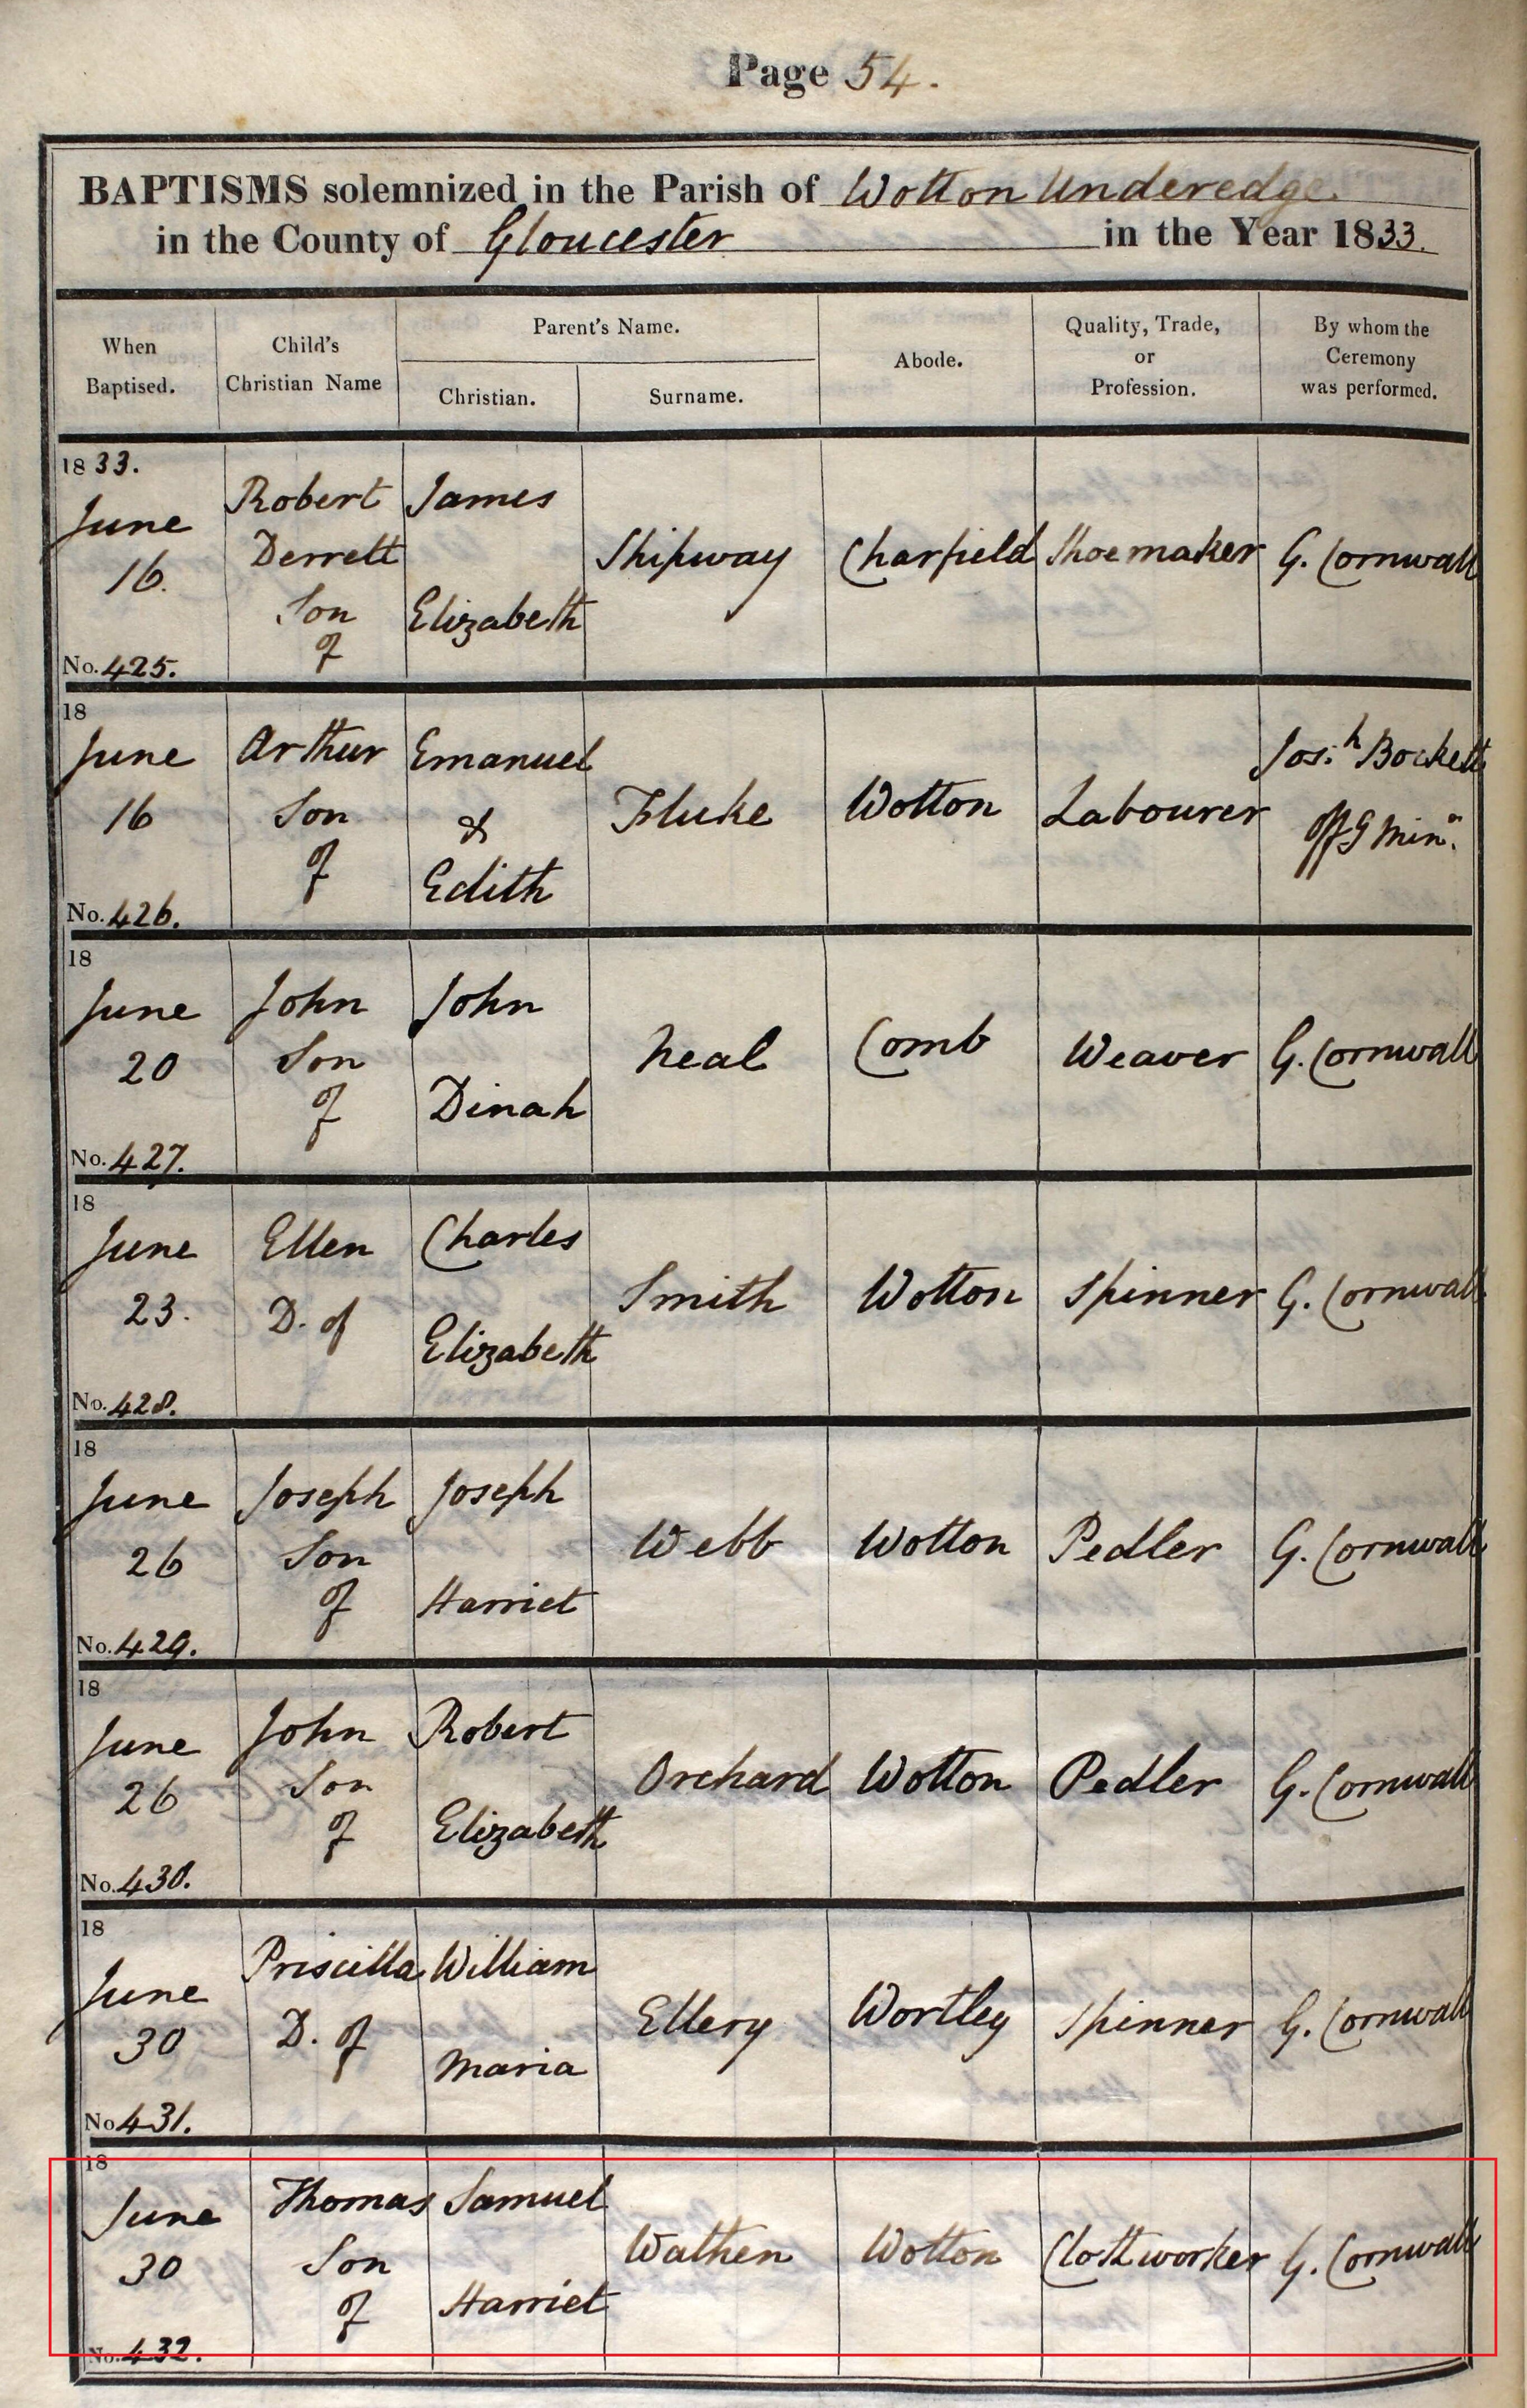 Page 54.
BAPTISMS solemnized in the Parish of Wotton Underedge.
in the County of Gloucester in the Year 1833.
When Baptised.
Child's Christian Name
Parent's Name.
Christian.
Surname.
Abode.
Quality, Trade, or Profession.
By whom the Ceremony was performed.
1833.
June
16.
No. 425.
Robert
Derrett
Son
of
James
Elizabeth
Shipway
Charfield
Shoemaker
G. Cornwall
18
June
16
No. 426.
Arthur
Son
of
Emanuel
&
Edith
Fluke
Wotton
Labourer
Jos.h Bockett
Offg Minr.
18
June
20
No. 427.
John
Son
of
John
Dinah
Neal
Comb
Weaver
G. Cornwall
18
June
23.
No. 428.
Ellen
D. of
Charles
Elizabeth
Smith
Wotton
Spinner
G. Cornwall
18
June
26
No. 429.
Joseph
Son
of
Joseph
Harriet
Webb
Wotton
Pedler
G. Cornwall
18
June
26
No. 430.
John
Son
of
Robert
Elizabeth
Orchard
Wotton
Pedler
G. Cornwall
18
June
30
No 431.
Priscilla
D. of
William
Maria
Ellery
Wortley
Spinner
G. Cornwall
18
June
30
No. 432.
Thomas
Son
of
Samuel
Harriet
Wathen
Wotton
Clothworker
G. Cornwall